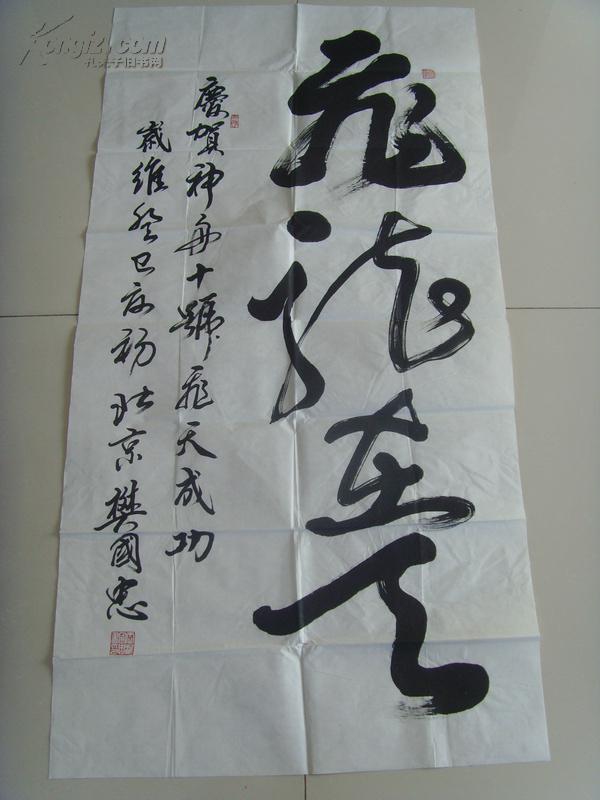 飛龍在天
慶賀神舟十號飛天成功
歲維癸巳夏初北京樊國忠
Kongfz.com
孔夫子旧书网